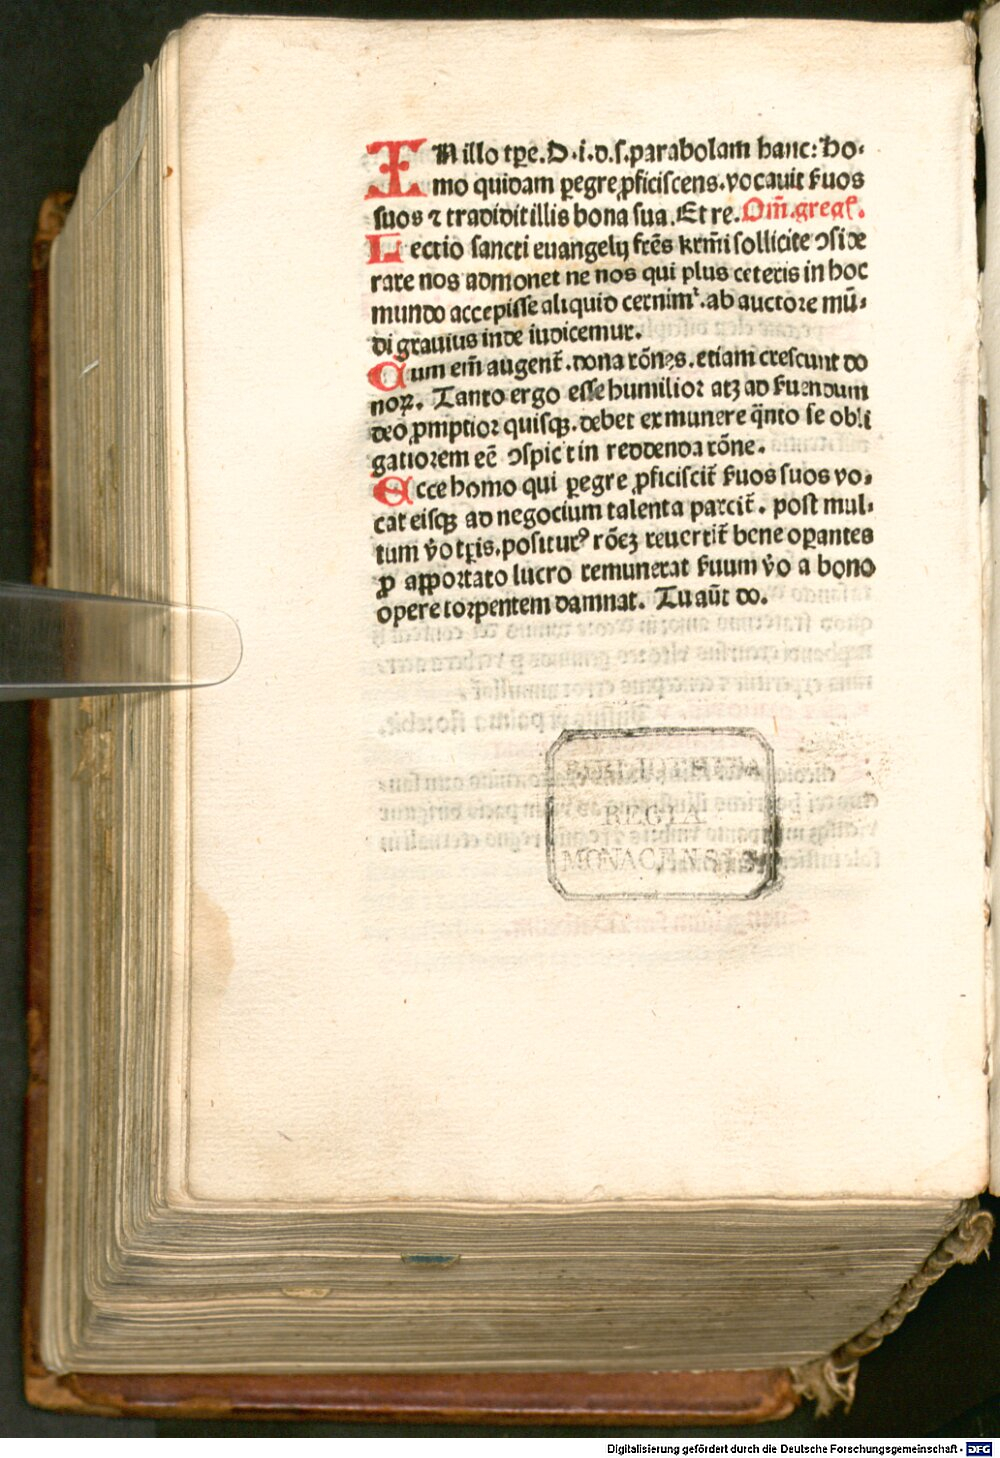 IN illo tp̄e. D. i. d. s. parabolam hanc: Ho⸗
mo quidam ꝑegre ꝓficiscens. vocauit ẜuos
suos ⁊ tradidit illis bona sua. Et re. Om̄. greg.
Lectio sancti euangelij fr̄es kr̄mi sollicite ↄside
rare nos admonet ne nos qui plus ceteris in hoc
mundo accepisse aliquid cernimᷣ. ab auctore mū⸗
di grauius inde iudicemur.
Cum em̄ augent᷑. dona rōnes. etiam crescunt do
noꝝ. Tanto ergo esse humilior atqꝫ ad ẜuendum
deo ꝓmptior quisqꝫ. debet ex munere q̈nto se obli
gatiorem eē ↄspicit in reddenda rōne.
Ecce homo qui ꝑegre ꝓficiscit᷑ ẜuos suos vo⸗
cat eisqꝫ ad negocium talenta parcit᷑. post mul⸗
tum v̊o tꝑis. positurꝰ rōeꝫ reuertit᷑ bene oꝑantes
ꝓ apportato lucro remunerat ẜuum v̊o a bono
opere torpentem damnat. Tu aūt do.
BIBLIOTHECA
REGIA
MONACENSIS
Digitalisierung gefördert durch die Deutsche Forschungsgemeinschaft - DFG